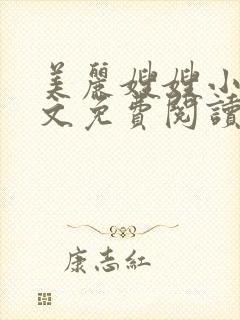 美麗嫂嫂小
文免費閱讀
康志紅